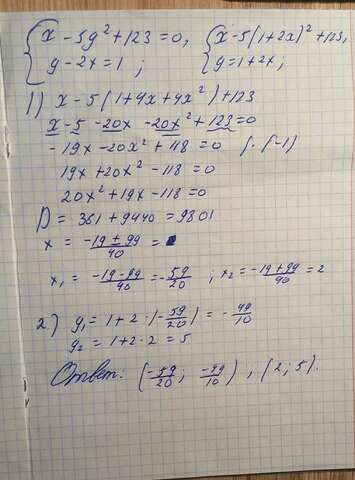 { x - 5y² + 123 = 0, { x - 5(1+2x)² + 123,
y - 2x = 1 ; y = 1 + 2x ;
1) x - 5(1 + 4x + 4x²) + 123
x - 5 - 20x - 20x² + 123 = 0
- 19x - 20x² + 118 = 0 | · (-1)
19x + 20x² - 118 = 0
20x² + 19x - 118 = 0
D = 361 + 9440 = 9801
x = -19 ± 99 / 40 =
x₁ = -19 - 99 / 40 = - 59/20 ; x₂ = -19 + 99 / 40 = 2
2) y₁ = 1 + 2 · (-59/20) = - 49/10
y₂ = 1 + 2 · 2 = 5
Ответ: (-59/20 ; -49/10) , (2 ; 5).